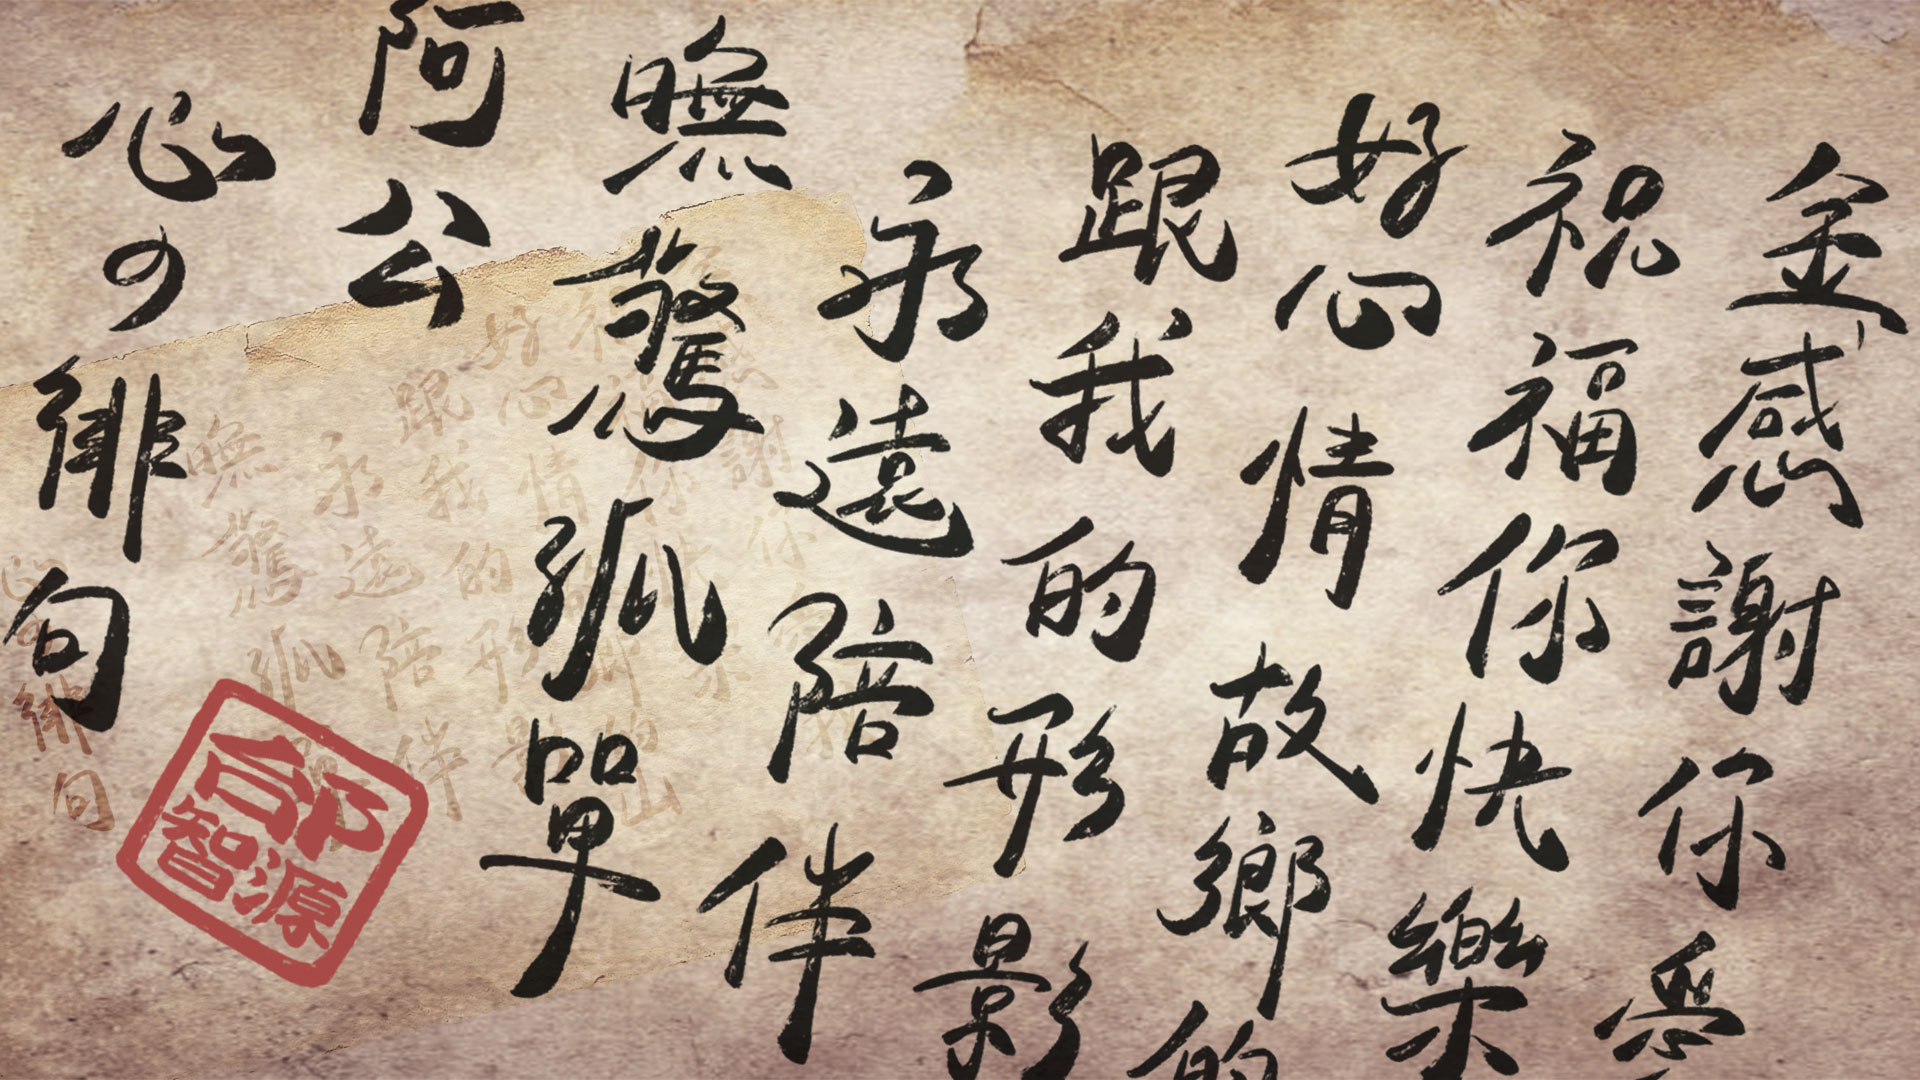 金感謝你愛
祝福你快樂
好心情故鄉的
跟我的形影
永遠陪伴
嘸驚孤單
阿公
心の俳句
邰智源